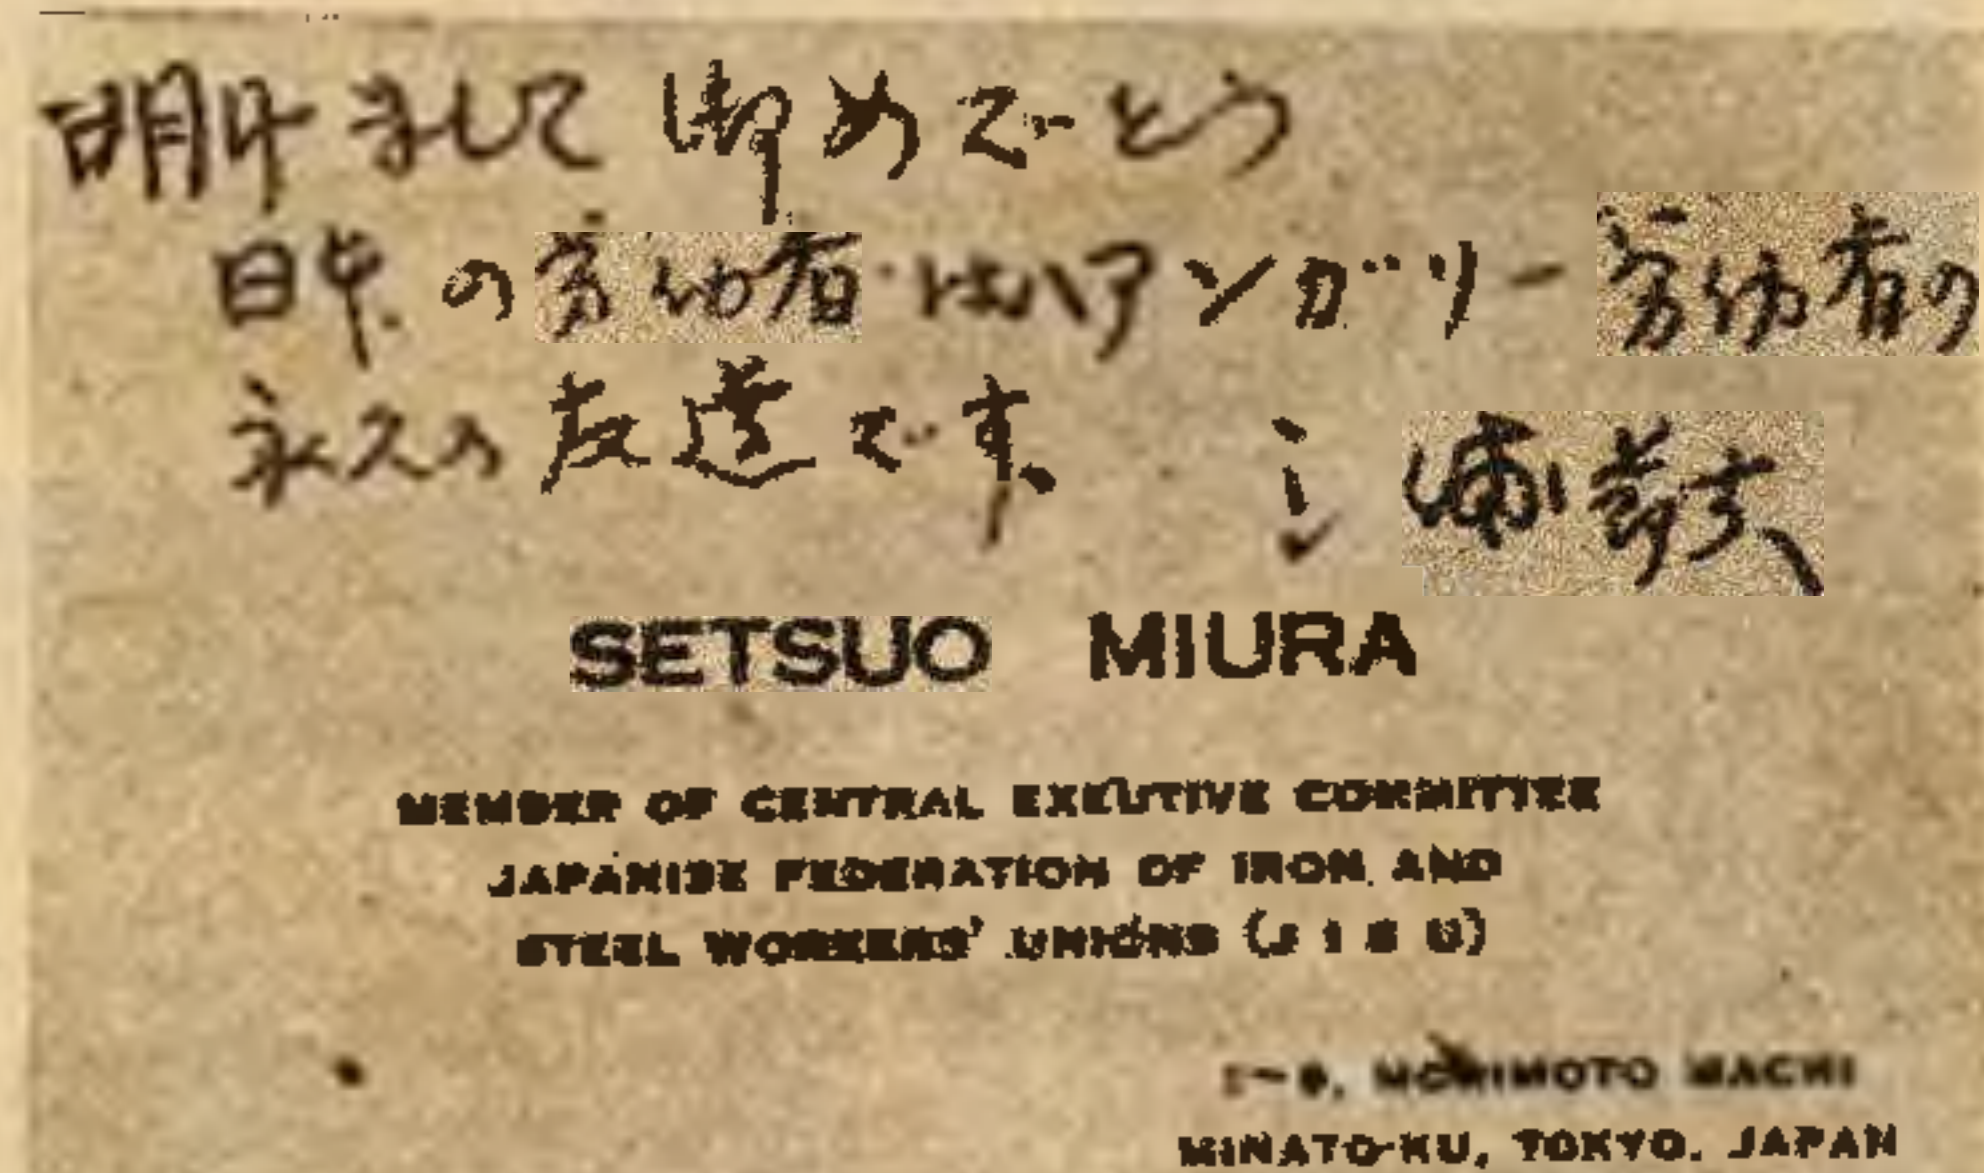 明けまして御めでとう
日本の労働者はハンガリー労働者の
永久の友達です、
三浦節夫
SETSUO MIURA
MEMBER OF CENTRAL EXEUTIVE COMMITTEE
JAPANISE FEDERATION OF IRON AND
STEEL WORKERS' UNIONS
MORIMOTO MACHI
MINATO-KU, TOKYO. JAPAN